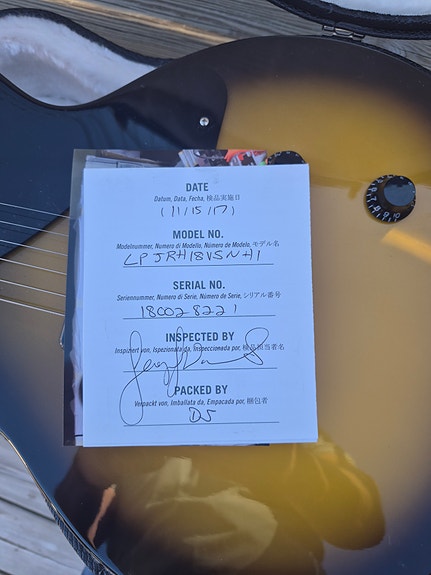 DATE
Datum, Data, Fecha, 検品実施日
(11/15/17)
MODEL NO.
Modelnummer, Numero di Modello, Número de Modelo, モデル名
LPJRH18VSNH1
SERIAL NO.
Seriennummer, Numero di Serie, Número de Serie, シリアル番号
180028221
INSPECTED BY
Inspiziert von, Ispezionata da, Inspeccionada por, 検品担当者名
PACKED BY
Verpackt von, Imballata da, Empacada por, 梱包者
DJ